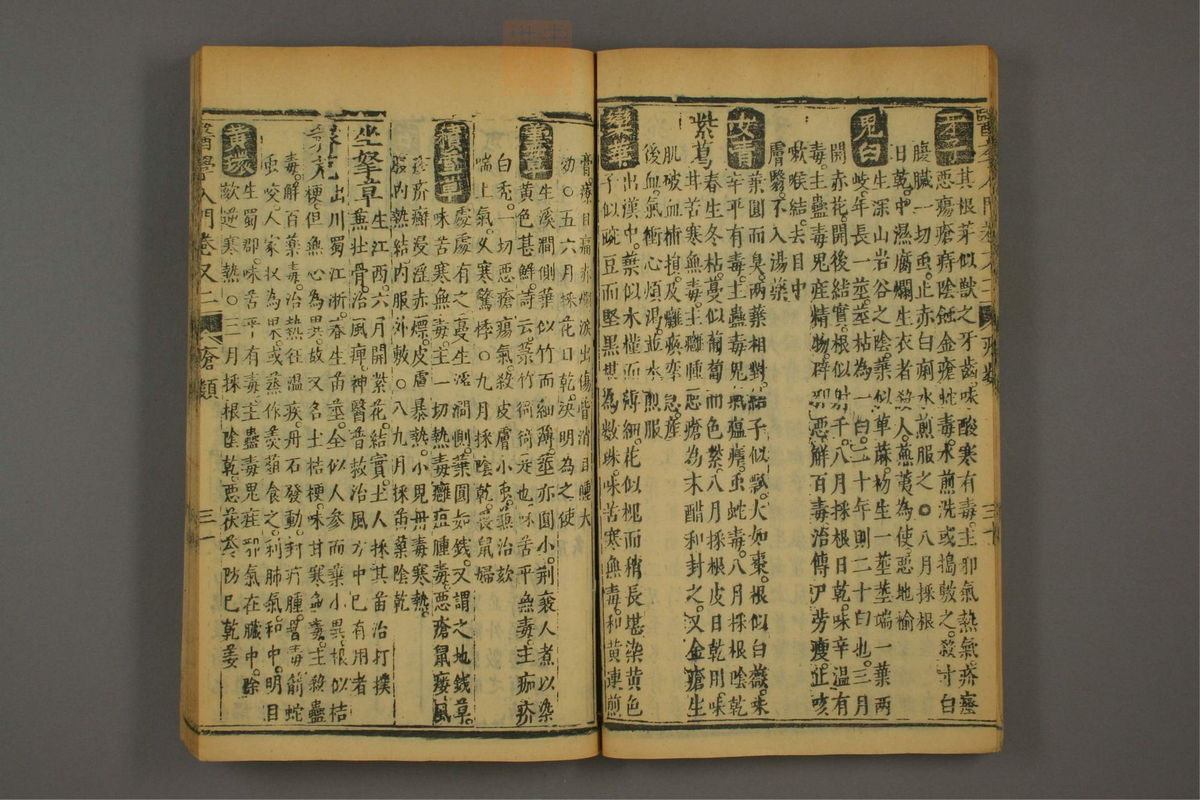 牙子
其根芽似獸之牙齒味酸寒有毒主邪氣熱氣疥瘙
惡瘍瘡痔陰蝕金瘡蛇毒水煎洗或搗敷之殺寸白
腹臟一切虫止赤白痢水煎服之○八月採根
日乾中濕腐爛生衣者殺人蕪荑為使惡地榆
鬼臼
生深山岩谷之陰葉似蓖麻初生一莖莖端一葉兩
岐年長一莖莖枯為一臼二十年則二十臼也三月
開赤花開後結實根似射干八月採根日乾味辛溫有
毒主蠱毒鬼疰精物辟邪惡解百毒治傳尸勞瘦止咳
嗽喉結去目中
膚翳不入湯藥
女青
葉圓而臭兩葉相對結子似瓢大如棗根似白薇味
辛平有毒主蠱毒鬼氣瘟瘧虫蛇毒八月採根陰乾
紫葛
春生冬枯蔓似葡萄而色紫八月採根皮日乾用味
甘苦寒無毒主癰腫惡瘡為末醋和封之又金瘡生
肌破血補損及癱瘓攣急產
後血氣衝心煩渴並水煎服
欒華
出漢中葉似木槿而薄細花似槐而稍長堪染黃色
子似豌豆而堅黑堪為數珠味苦寒無毒和黃連煎
醫學入門卷又二 瘡類 三十一
膏療目痛赤爛淚出傷眥消目腫大
効○五六月採花日乾決明為之使
藎草
生溪澗側葉似竹而細薄莖亦圓小荊襄人煮以染
黃色甚鮮詩云菉竹猗猗是也味苦平無毒主痂疥
白禿一切惡瘡瘍氣殺皮膚小虫兼治欬
喘上氣久寒驚悸○九月採陰乾畏鼠婦
積雪草
處處有之蔓生溪澗側葉圓如錢又謂之地錢草
味苦寒無毒主一切熱毒癰疽腫毒惡瘡鼠瘻風
疹疥癬浸淫赤熛皮膚暴熱小兒丹毒寒熱
腹內熱結內服外敷○八九月採苗葉陰乾
坐拏草
生江西六月開紫花結實土人採其苗治打撲
兼壯骨治風痺神醫普救治風方中已有用者
薺苨
出川蜀江浙春生苗莖全似人參而葉小異根似桔
梗但無心為異故又名土桔梗味甘寒無毒主殺蠱
毒解百藥毒治熱狂溫疾丹石發動封疔腫署毒箭蛇
虫咬人家收為果或蒸作羹虀食之利肺氣和中明目
黃環
生蜀郡味苦平有毒主蠱毒鬼疰邪氣在臟中除
欬逆寒熱○三月採根陰乾惡茯苓防己乾姜